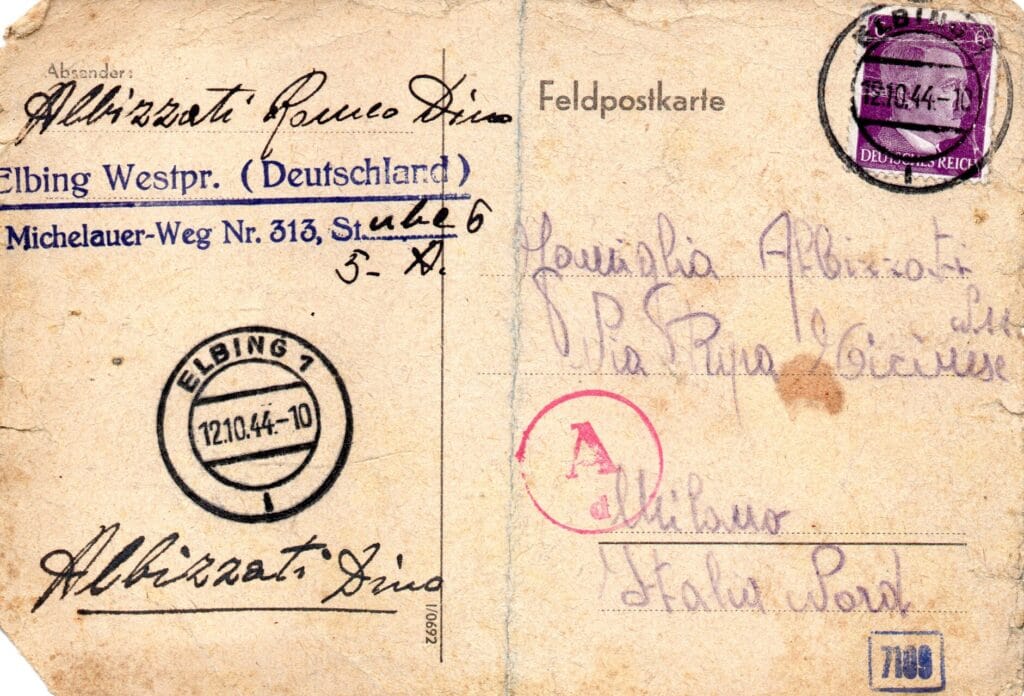 Absender:
Albizzati Romeo Dino
Elbing Westpr. (Deutschland)
Michelauer-Weg Nr. 313, Stube 6
5- A.
ELBING 1
12.10.44.-10
1
Albizzati Dino
I/0692
Feldpostkarte
ELBING 1
6 6
12.10.44.-10
DEUTSCHES REICH
1
Famiglia Albizzati
Via Ripa Ticinese
A
d
Milano
Italia Nord